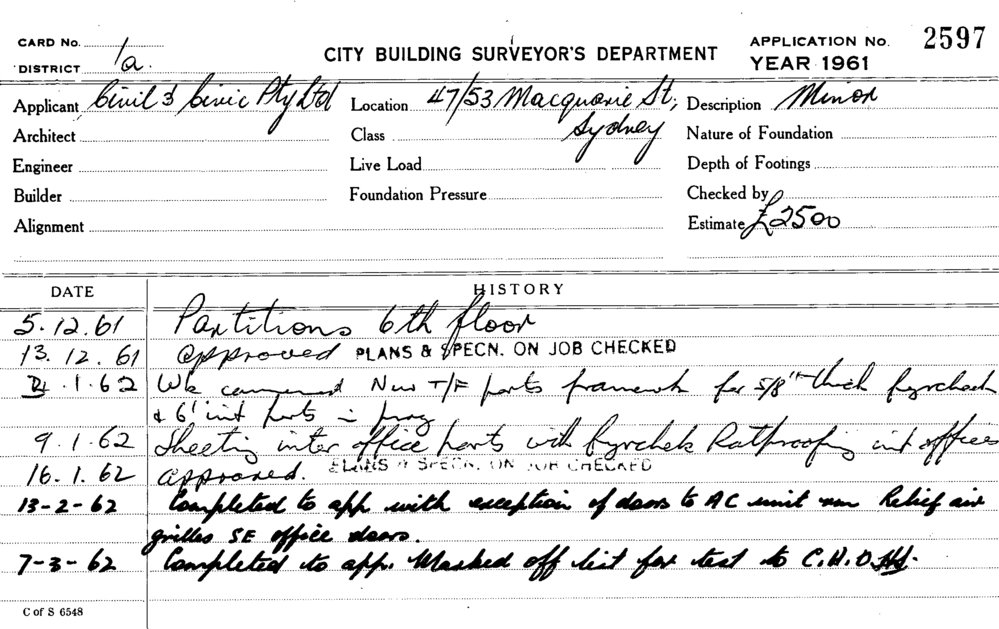 CARD No. 1a. CITY BUILDING SURVEYOR'S DEPARTMENT APPLICATION No. 2597
DISTRICT YEAR 1961
Applicant Civil & Civic Pty Ltd Location 47/53 Macquarie St, Description Minor
Architect Class Sydney Nature of Foundation
Engineer Live Load Depth of Footings
Builder Foundation Pressure Checked by
Alignment Estimate £2500
DATE HISTORY
5.12.61 Partitions 6th floor
13.12.61 Approved PLANS & SPECN. ON JOB CHECKED
.1.62 Wk commenced New T/F parts framework for 5/8" thick fyrchek
& 6' int parts in prog
9.1.62 Sheeting inter office parts with fyrchek Ratproofing int offices
16.1.62 Approved. PLANS & SPECN. ON JOB CHECKED
13-2-62 Completed to app with exception of doors to AC unit rm Relief air
grilles SE office doors.
7-3-62 Completed to app. Marked off list for test to C.H.O.
C of S 6548